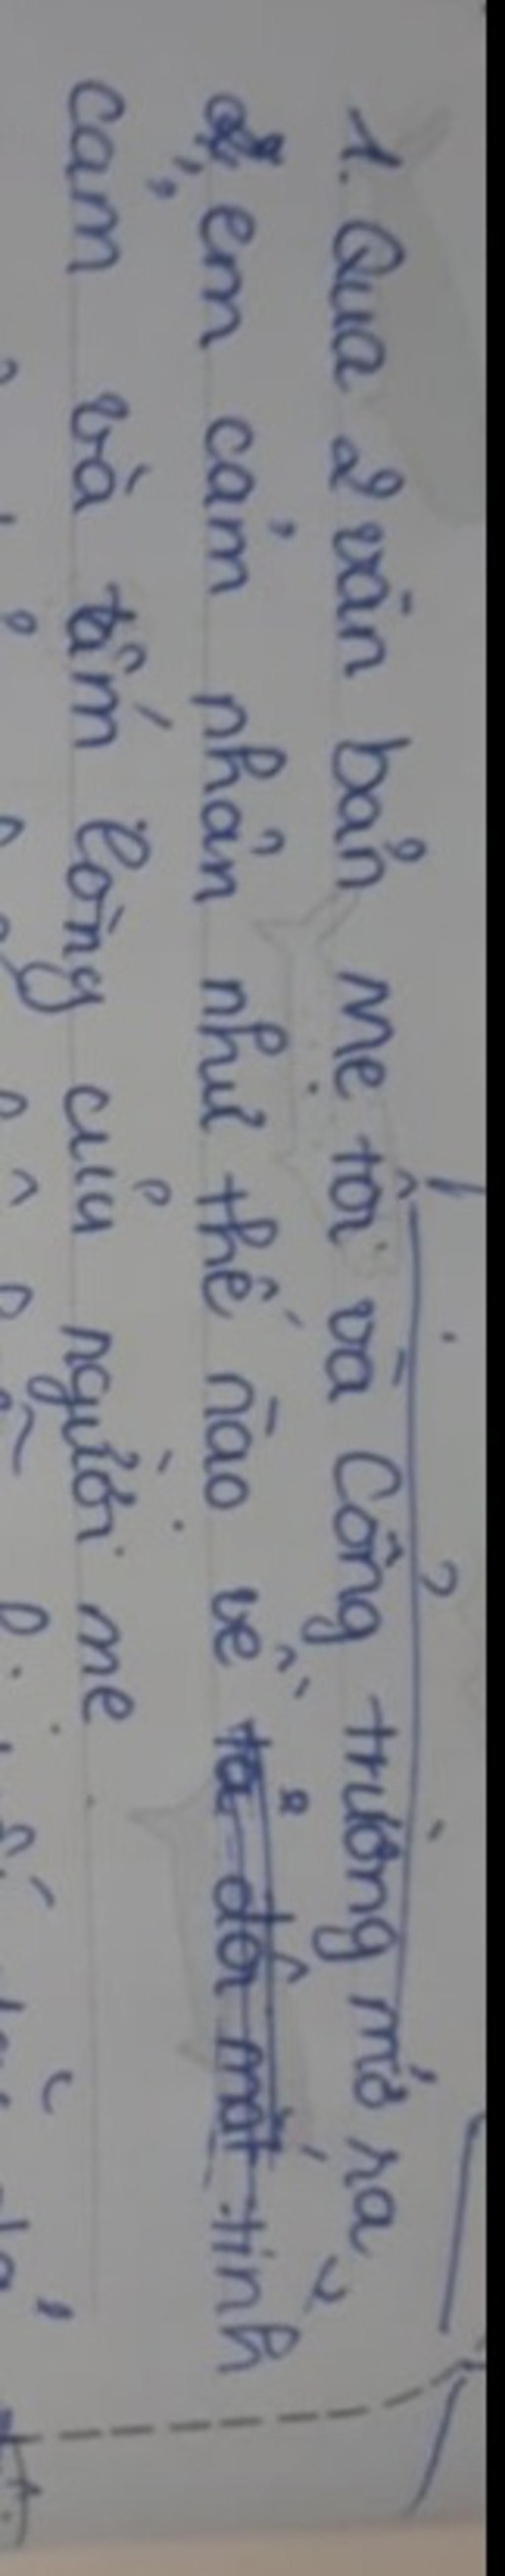 1. Qua 2 văn bản Mẹ tôi và Cổng trường mở ra
, em cảm nhận như thế nào về tình
cảm và tấm lòng của người mẹ